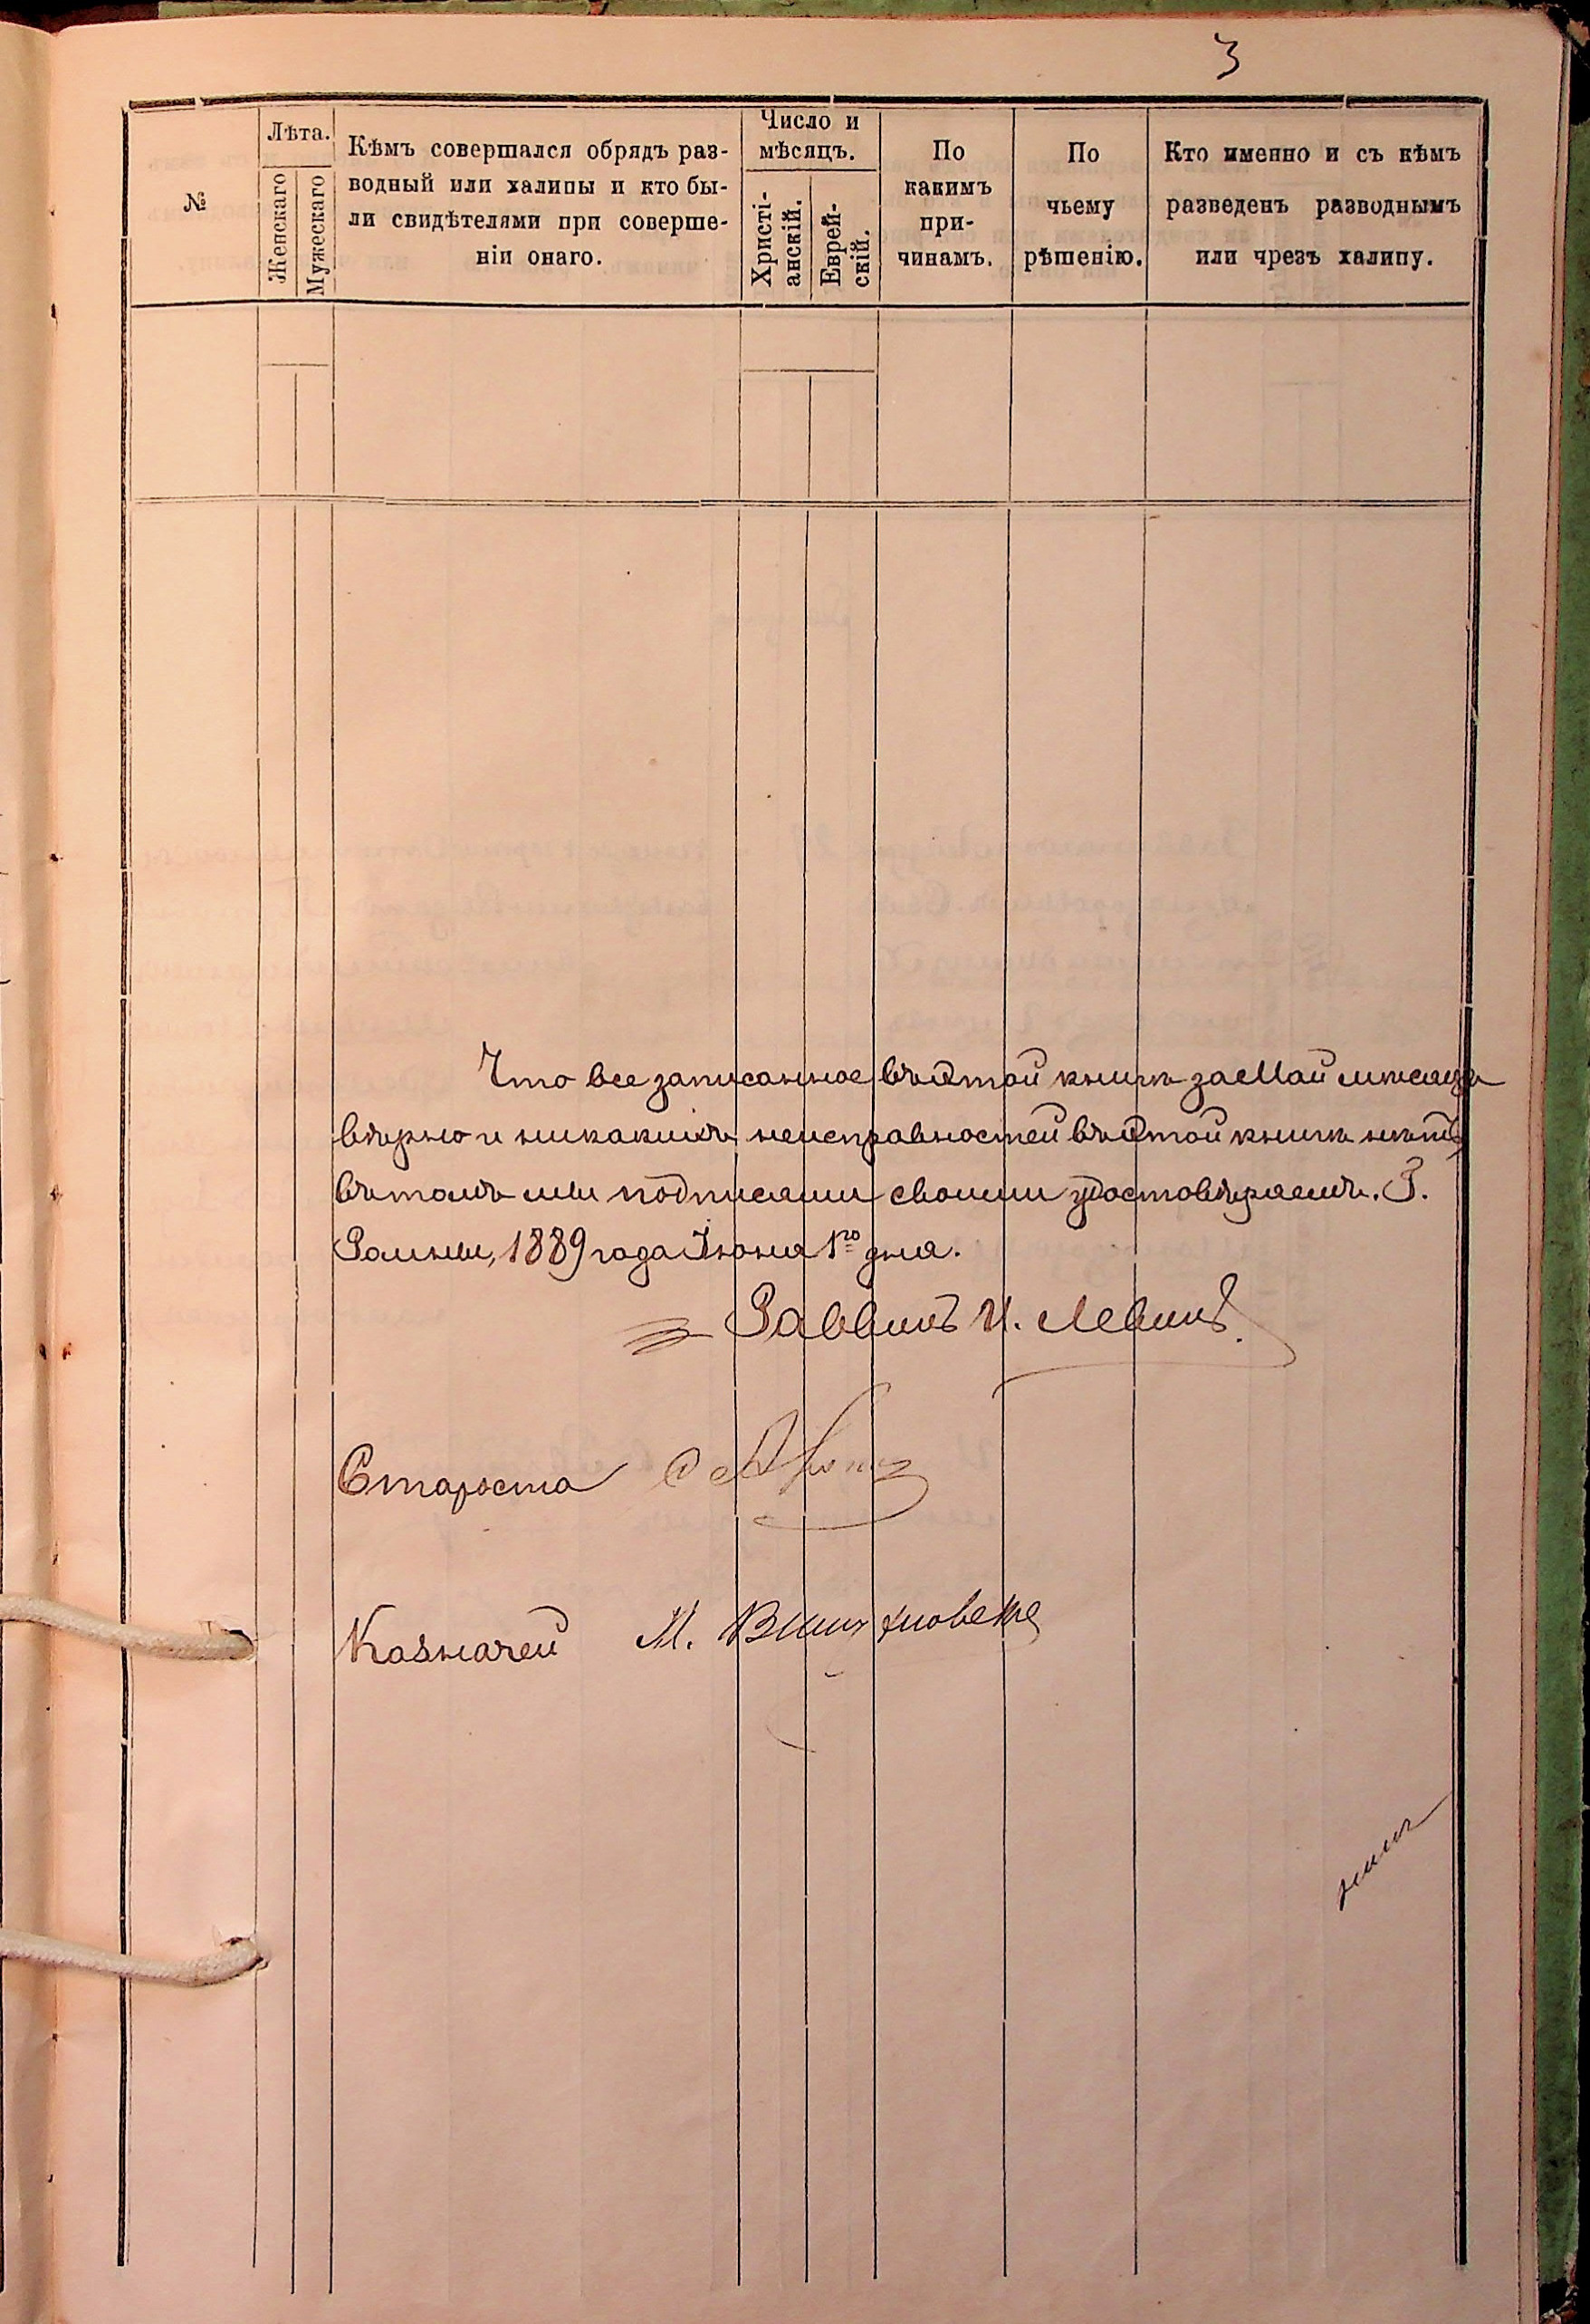 3
№
Лѣта.
Женскаго
Мужескаго
Кѣмъ совершался обрядъ раз-
водный или халицы и кто бы-
ли свидѣтелями при соверше-
ніи онаго.
Число и
мѣсяцъ.
Христі-
анскій.
Еврей-
скій.
По
какимъ
при-
чинамъ.
По
чьему
рѣшенію.
Кто именно и съ кѣмъ
разведенъ разводнымъ
или чрезъ халицу.
Что все записанное въ этой книгѣ за Май мѣсяцъ
вѣрно и никакихъ неисправностей въ этой книгѣ нѣтъ,
въ томъ мы подписями своими удостовѣряемъ. Г.
Ромны, 1889 года Іюня 1го дня.
Раввинъ И. Левинъ.
Староста
Казначей М.